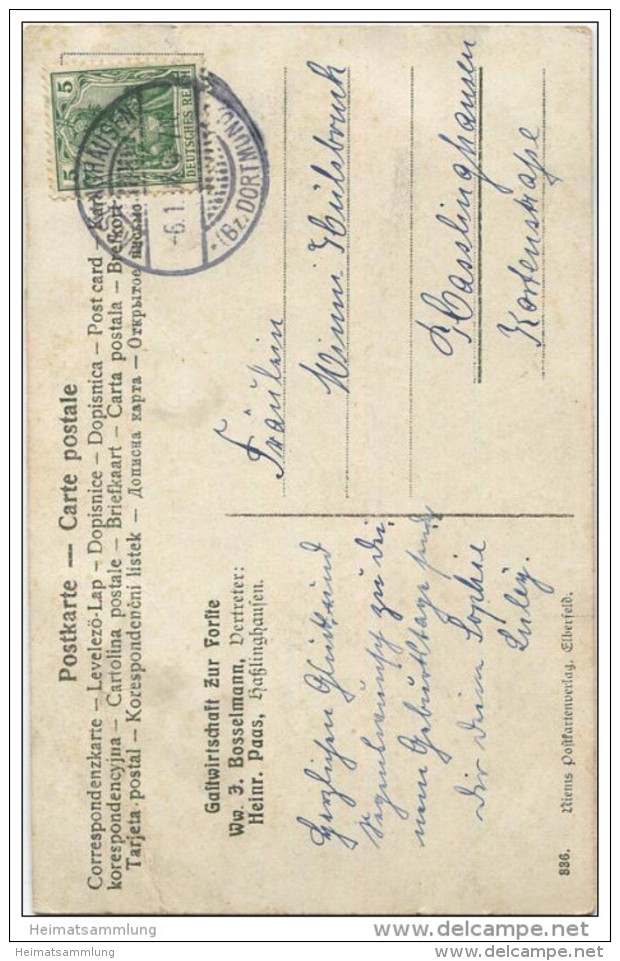 Postkarte — Carte postale
Correspondenzkarte – Levelező-Lap – Dopisnice – Dopisnica – Post card –
korespondencyjna – Cartolina postale – Briefkaart – Carta postala – Brefkort –
Tarjeta postal – Korespondenční listek – Дописна карта – Открытое письмо
5
5
DEUTSCHES REICH
HAUSEN
-6.1.
*(Bz. DORTMUND)
Gastwirtschaft Zur Forste
Ww. J. Bosselmann, Vertreter:
Heinr. Paas, Haßlinghausen.
Herzlichen Glück und
Segenswunsch zu Dei
nem Geburtstage
Dir Deine Sophie
Fräulein
Minni Hülsbruck
Hasslinghausen
Kortenstraße
336.
Niems Postkartenverlag, Elberfeld.
Heimatsammlung
www.delcampe.net
Heimatsammlung
www.delcampe.net